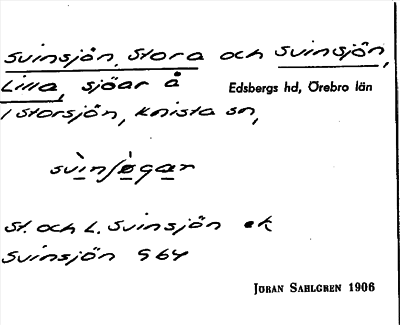 Svinsjön, Stora och Svinsjön,
Lilla, sjöar å Edsbergs hd, Örebro län
i Storsjön, Knista sn,
svìnʃø̀gar
St. och L. Svinsjön ek
Svinsjön 964
Jöran Sahlgren 1906